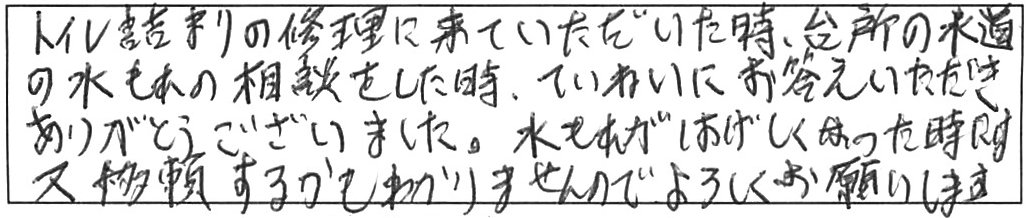 トイレ詰まりの修理に来ていただいた時、台所の水道
の水もれの相談をした時、ていねいにお答えいただき
ありがとうございました。水もれがはげしくなった時は
又依頼するかもわかりませんのでよろしくお願いします